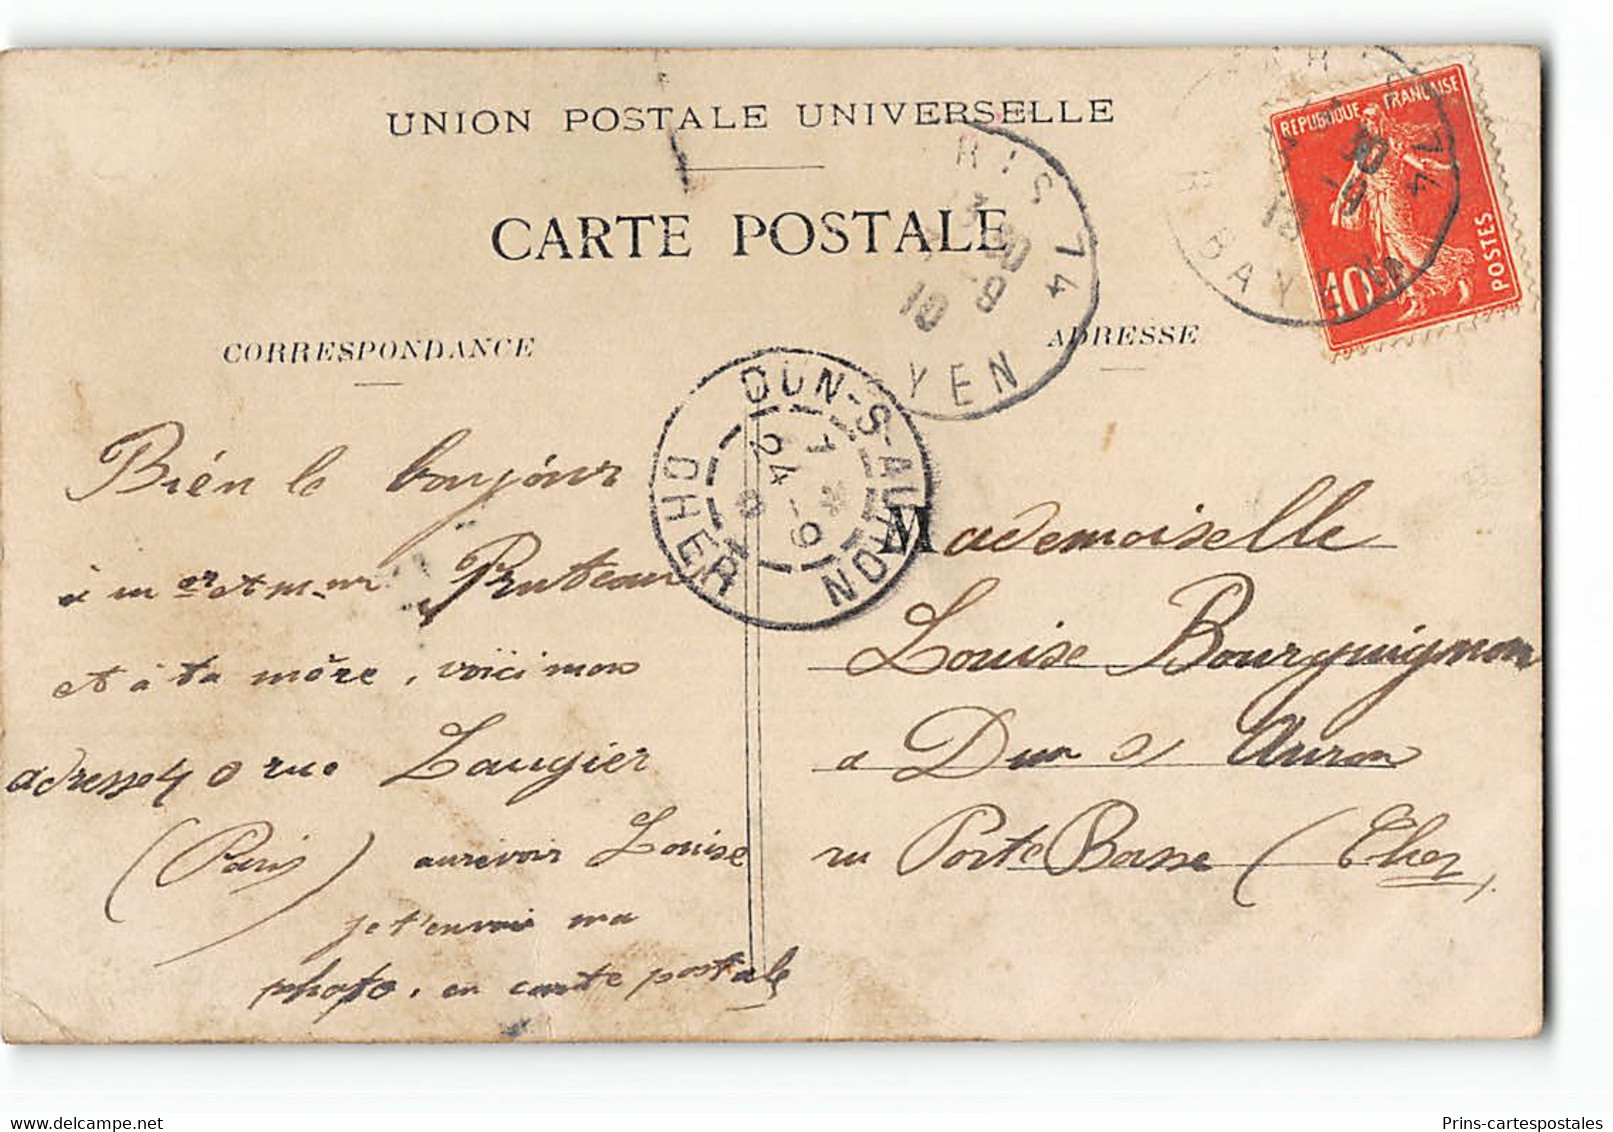 UNION POSTALE UNIVERSELLE
CARTE POSTALE
CORRESPONDANCE
ADRESSE
REPUBLIQUE FRANÇAISE
POSTES
10
RIS 74
YEN
74
BAYEN
DUN-S-AURON
CHER
24 - 9
Bién le bonjour
à mer et mr Pruteau
et à ta mère, voici mon
adresse 40 rue Laugier
(Paris) aurevoir Louise
je t'envoie ma
photo, en carte postale
Mademoiselle
Louise Bourguignon
a Dun s/ Auron
ru Porte Basse (Cher)
delcampe.net
Prins-cartespostales